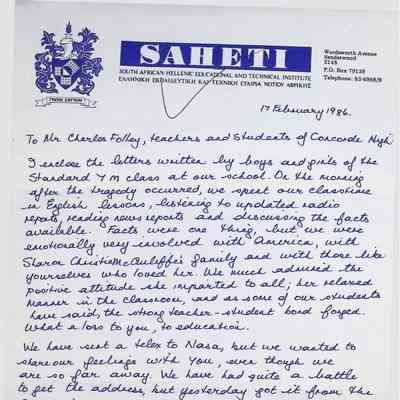 SAHETI
SOUTH AFRICAN HELLENIC EDUCATIONAL AND TECHNICAL INSTITUTE
ΕΛΛΗΝΙΚΗ ΕΚΠΑΙΔΕΥΤΙΚΗ ΚΑΙ ΤΕΧΝΙΚΗ ΕΤΑΙΡΙΑ ΝΟΤΙΟΥ ΑΦΡΙΚΗΣ
Wordsworth Avenue
Senderwood
2145
P.O. Box 79135
Telephone:
17 February 1986.
To Mr. Charles Folley, teachers and Students of Concorde High
I enclose the letters written by boys and girls of the
Standard 7 M class at our school. On the morning
after the tragedy occurred, we spent our classtime
in English lessons, listening to updated radio
reports, reading news reports and discussing the facts
available. Facts were one thing, but we were
emotionally very involved with America, with
Sharon Christa McCuliffe's family and with those like
yourselves who loved her. We much admired the
positive attitude she imparted to all; her relaxed
manner in the classroom, and as some of our students
have said, the strong teacher-student bond forged.
What a loss to you, to education.
We have sent a telex to Nasa, but we wanted to
share our feelings with you, even though we
are so far away. We have had quite a battle
to get the address, but yesterday got it from the